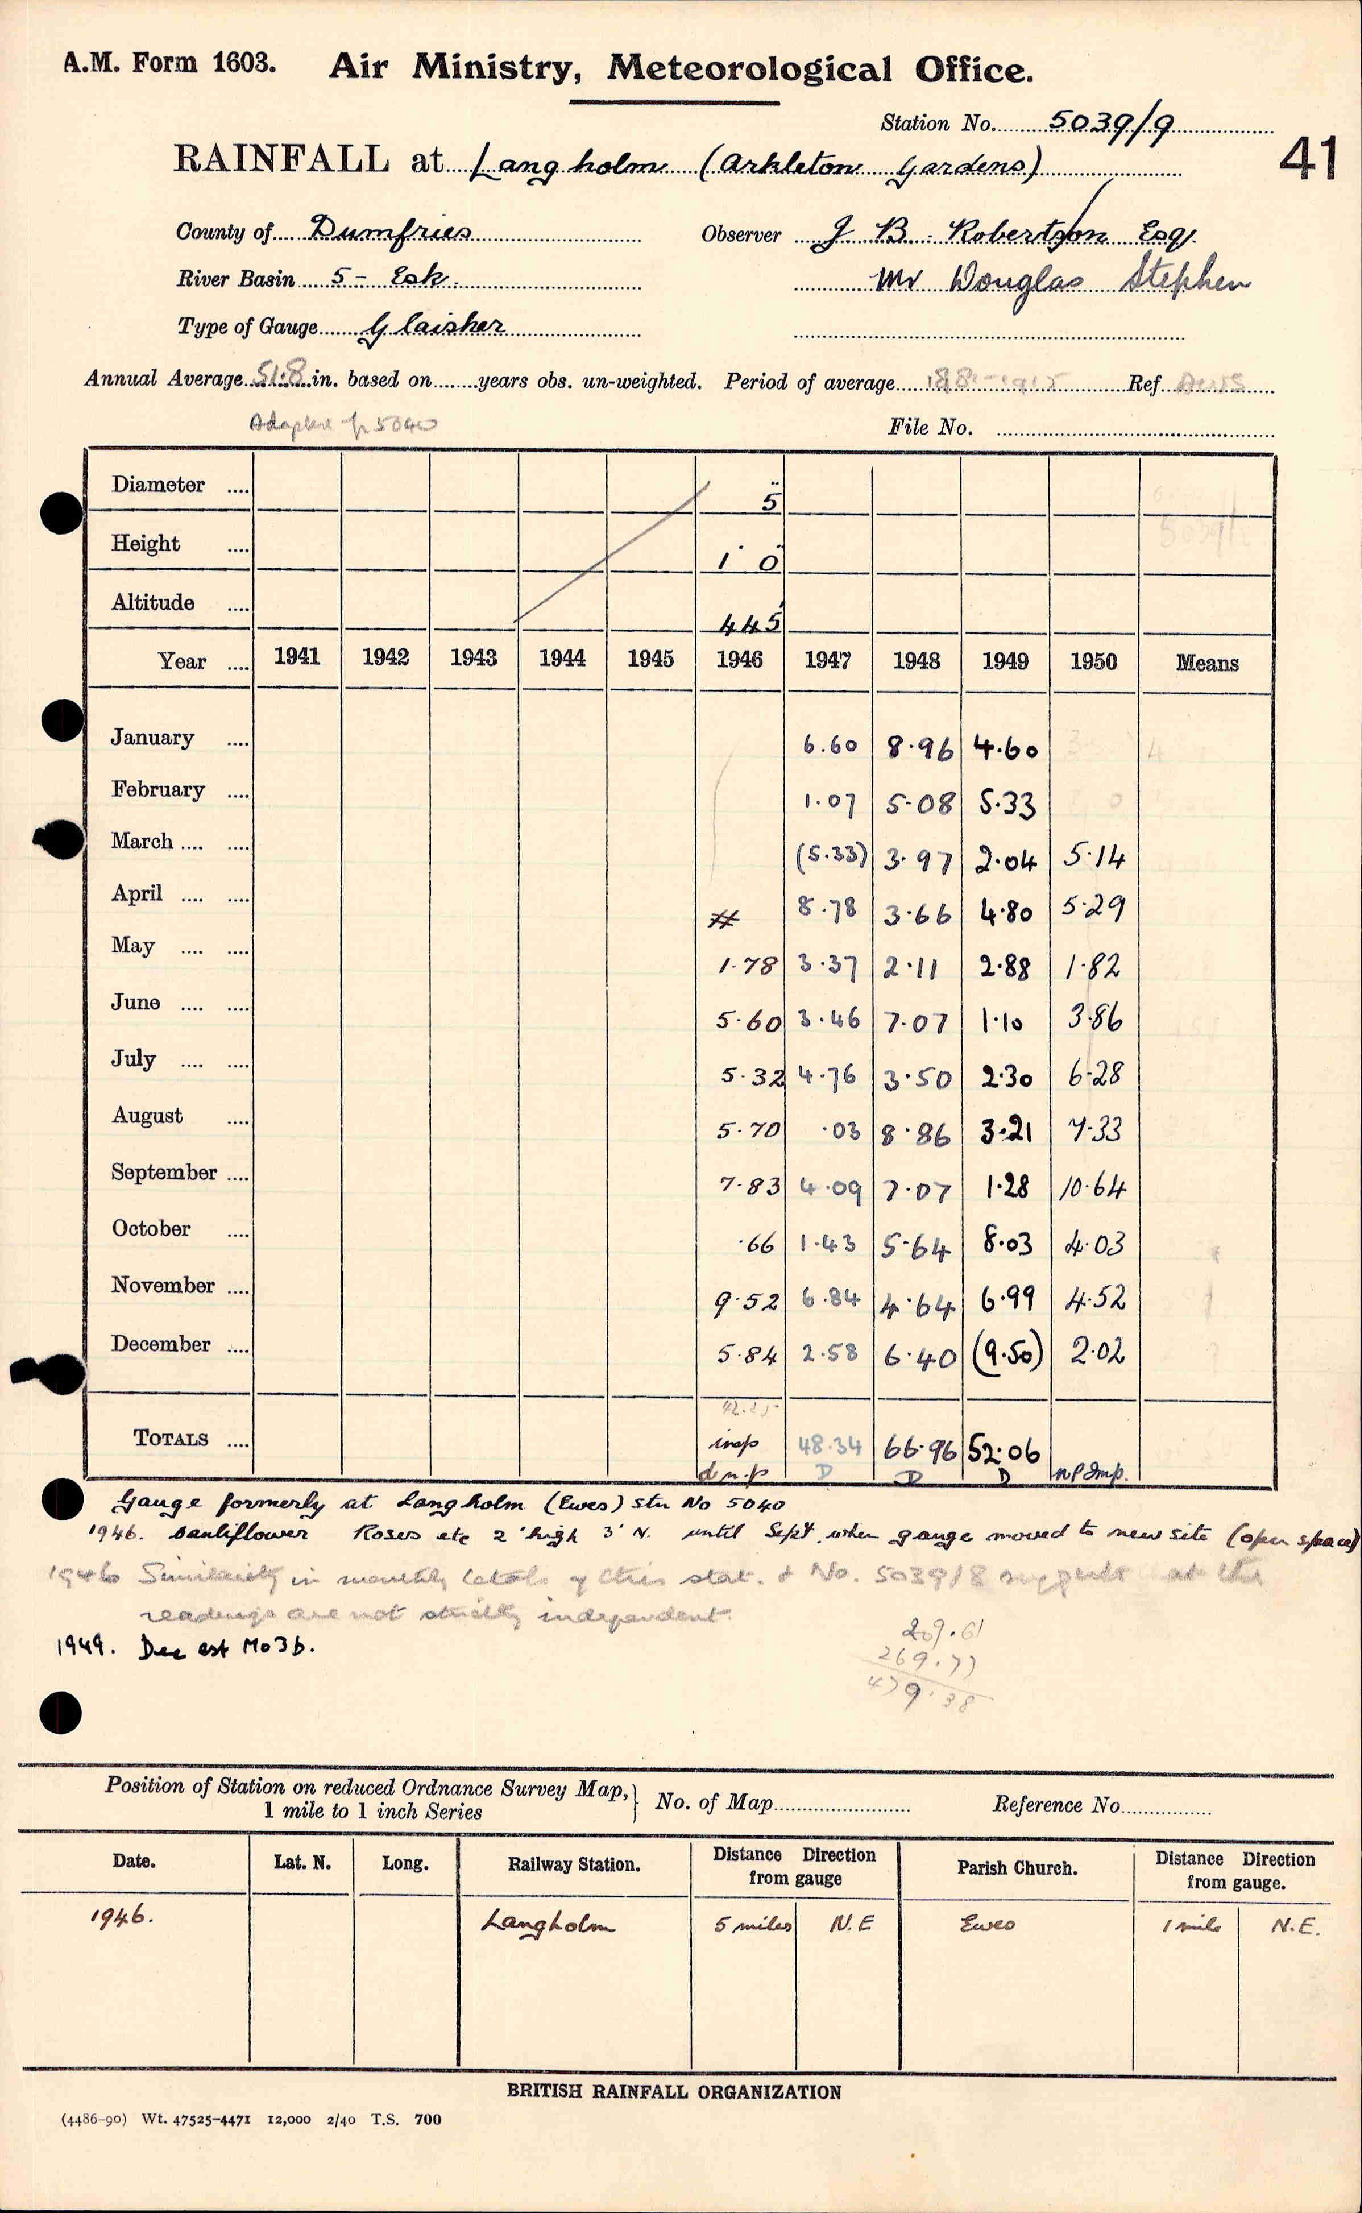 A.M. Form 1603. Air Ministry, Meteorological Office.
Station No. 5039/9
41
RAINFALL at Langholm (Arkleton Gardens)
County of Dumfries Observer J B. Robertson Esq.
River Basin 5 - Esk. Mr Douglas Stephen
Type of Gauge Glaisher
Annual Average 51.8 in. based on years obs. un-weighted. Period of average 1881-1915 Ref
5040
File No.
Diameter 5"
Height 1' 0"
Altitude 445'
Year 1941 1942 1943 1944 1945 1946 1947 1948 1949 1950 Means
January 6.60 8.96 4.60
February 1.07 5.08 5.33
March (5.33) 3.97 2.04 5.14
April 8.78 3.66 4.80 5.29
May 1.78 3.37 2.11 2.88 1.82
June 5.60 3.46 7.07 1.10 3.86
July 5.32 4.76 3.50 2.30 6.28
August 5.70 .03 8.86 3.21 7.33
September 7.83 4.09 7.07 1.28 10.64
October .66 1.43 5.64 8.03 4.03
November 9.52 6.84 4.64 6.99 4.52
December 5.84 2.58 6.40 (9.50) 2.02
42.25
TOTALS 48.34 66.96 52.06
d n.p D D D np Imp.
Gauge formerly at Langholm (Ewes) stn No 5040
1946. Roses etc 2' high 3' N. until Sept. when gauge moved to new site (open space)
1946 Similarity in monthly totals of this stat. & No. 5039/8 suggests that the
readings are not strictly independent.
1949. Dec est Mo3b.
209.61
269.77
479.38
Position of Station on reduced Ordnance Survey Map, 1 mile to 1 inch Series } No. of Map Reference No
Date. Lat. N. Long. Railway Station. Distance Direction from gauge Parish Church. Distance Direction from gauge.
1946. Langholm 5 miles N.E Ewes 1 mile N.E.
BRITISH RAINFALL ORGANIZATION
(4486-90) Wt. 47525-4471 12,000 2/40 T.S. 700